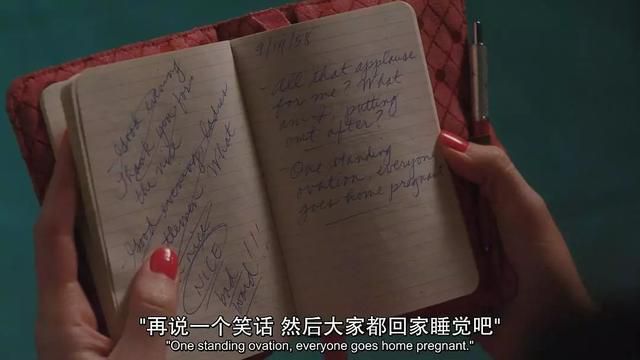 Good evening
Thank you for
the nice
Good evening ladies
gentlemen. What
nice
NICE
bad
word!!!
9/19/58
- All that applause
for me? What
am I, putting
out after?
- One standing
ovation, everyone
goes home pregnant
"再说一个笑话 然后大家都回家睡觉吧"
"One standing ovation, everyone goes home pregnant."